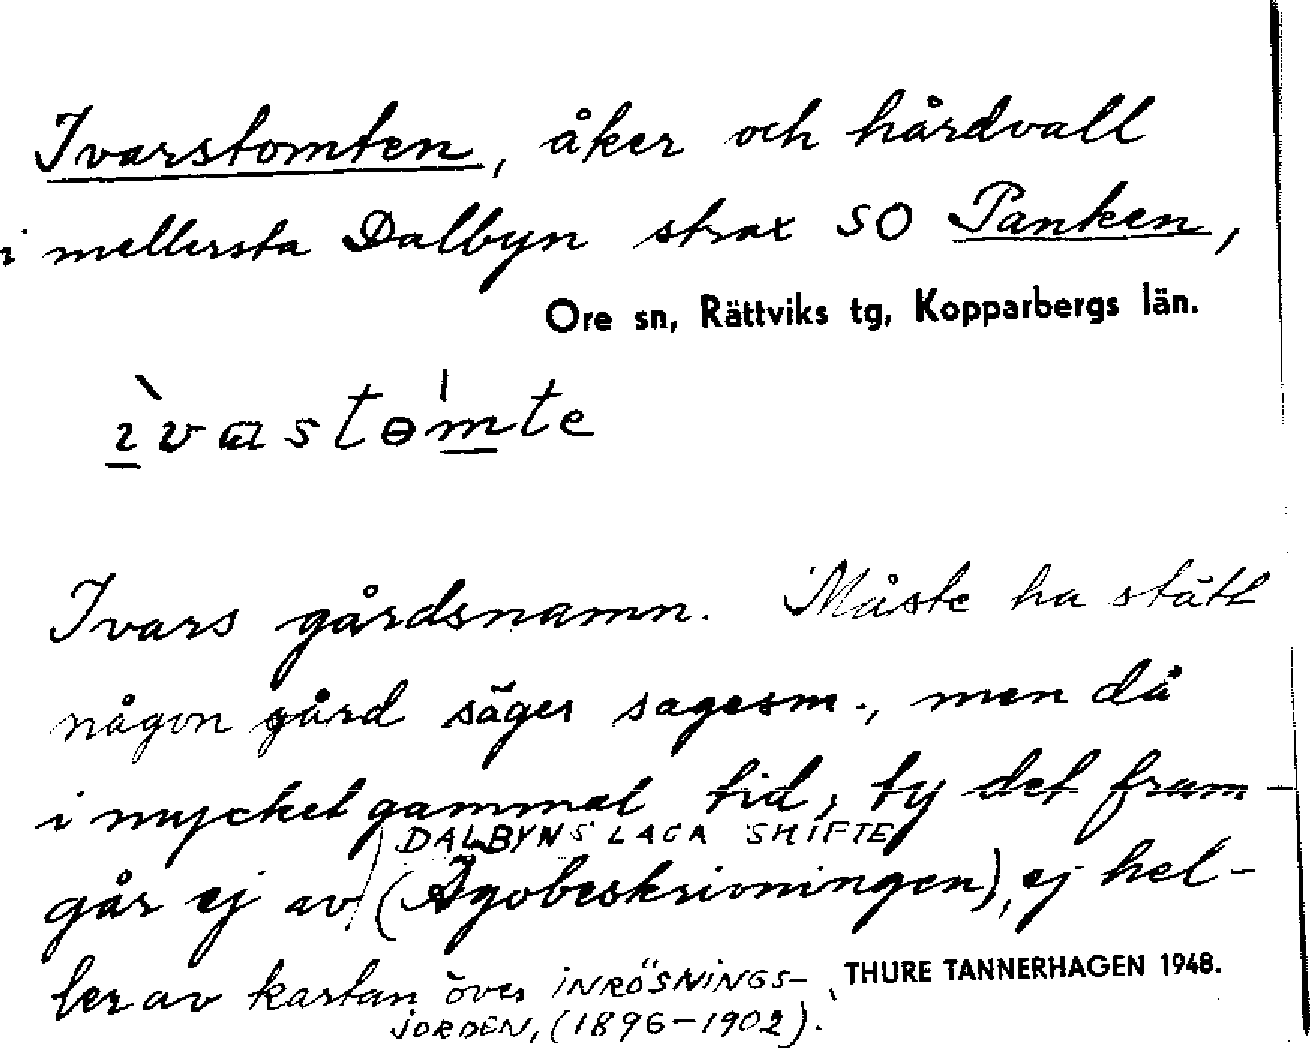 Ivarstomten, åker och hårdvall
i mellersta Dalbyn strax SO Panken,
Ore sn, Rättviks tg, Kopparbergs län.
ìvastɵ̍mte
Ivars gårdsnamn. Måste ha stått
någon gård säger sagesm., men då
i mycket gammal tid, ty det fram-
DALBYNS LAGA SKIFTE
går ej av (Ägobeskrivningen), ej hel-
ler av kartan över INRÖSNINGS-
JORDEN, (1896-1902).
THURE TANNERHAGEN 1948.